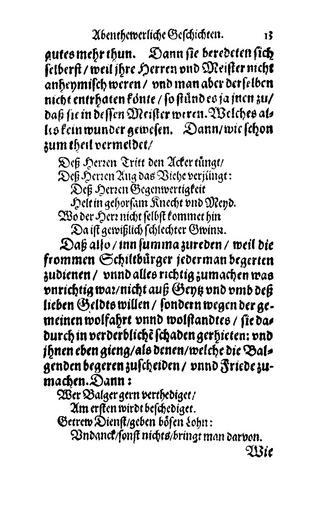 Abenthewerliche Geschichten. 13
gutes mehr thun. Dann sie beredeten sich
selberst/ weil jhre Herren vnd Meister nicht
anheymisch weren/ vnd man aber derselben
nicht entrhaten könte/ so stünd es ja jnen zu/
daß sie in dessen Meister weren. Welches al-
les kein wunder gewesen. Dann/ wie schon
zum theil vermeldet/
Deß Herren Tritt den Acker tüngt/
Deß Herren Aug das Viehe verjüngt:
Deß Herren Gegenwertigkeit
Helt in gehorsam Knecht vnd Meyd.
Wo der Herr nicht selbst kommet hin
Da ist gewißlich schlechter Gwinn.
Daß also/ inn summa zureden/ weil die
frommen Schiltbürger jederman begerten
zudienen/ vnnd alles richtig zumachen was
vnrichtig war/ nicht auß Geytz vnd vmb deß
lieben Geldts willen/ sondern wegen der ge-
meinen wolfahrt vnnd wolstandtes/ sie da-
durch in verderblichē schaden gerhieten: vnd
jhnen eben gieng/ als denen/ welche die Bal-
genden begeren zuscheiden/ vnnd Friede zu-
machen. Dann:
Wer Balger gern verthediget/
Am ersten wirdt beschediget.
Getrew Dienst/ geben bösen Lohn:
Vndanck/ sonst nichts/ bringt man darvon.
Wie